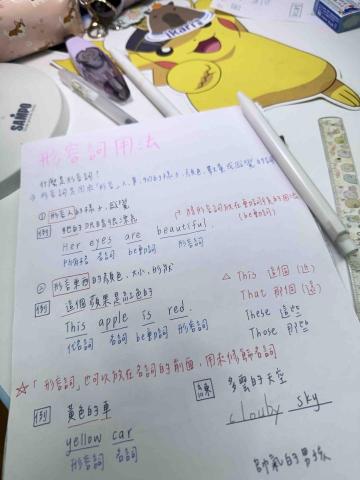 ikarra
SAMPO
形容詞用法
什麼是形容詞？
形容詞是用來形容人、事、物的樣子、顏色、數量或感覺的詞
① 形容人的樣子、感覺
例 她的眼睛很漂亮
Her eyes are beautiful.
所有格 名詞 be動詞 形容詞
將形容詞放在be動詞後的用法
(be動詞)
② 形容東西的顏色、大小、形狀
例 這個蘋果是紅色的
This apple is red.
代名詞 名詞 be動詞 形容詞
△ This 這個 (近)
That 那個 (遠)
These 這些
Those 那些
☆「形容詞」也可以放在名詞的前面，用來修飾名詞
例 黃色的車
yellow car
形容詞 名詞
多雲的天空
clouby sky
帥氣的男孩